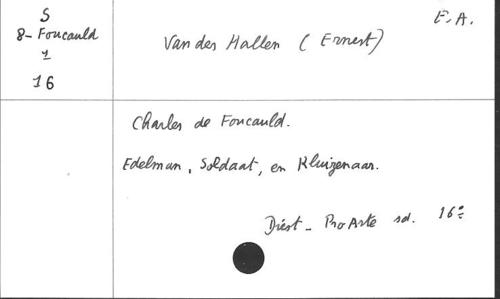 S
8-Foucauld
1
16
Van der Hallen (Ernest)
E.A.
Charles de Foucauld.
Edelman, Soldaat, en Kluizenaar.
Diest - Pro Arte sd. 16°